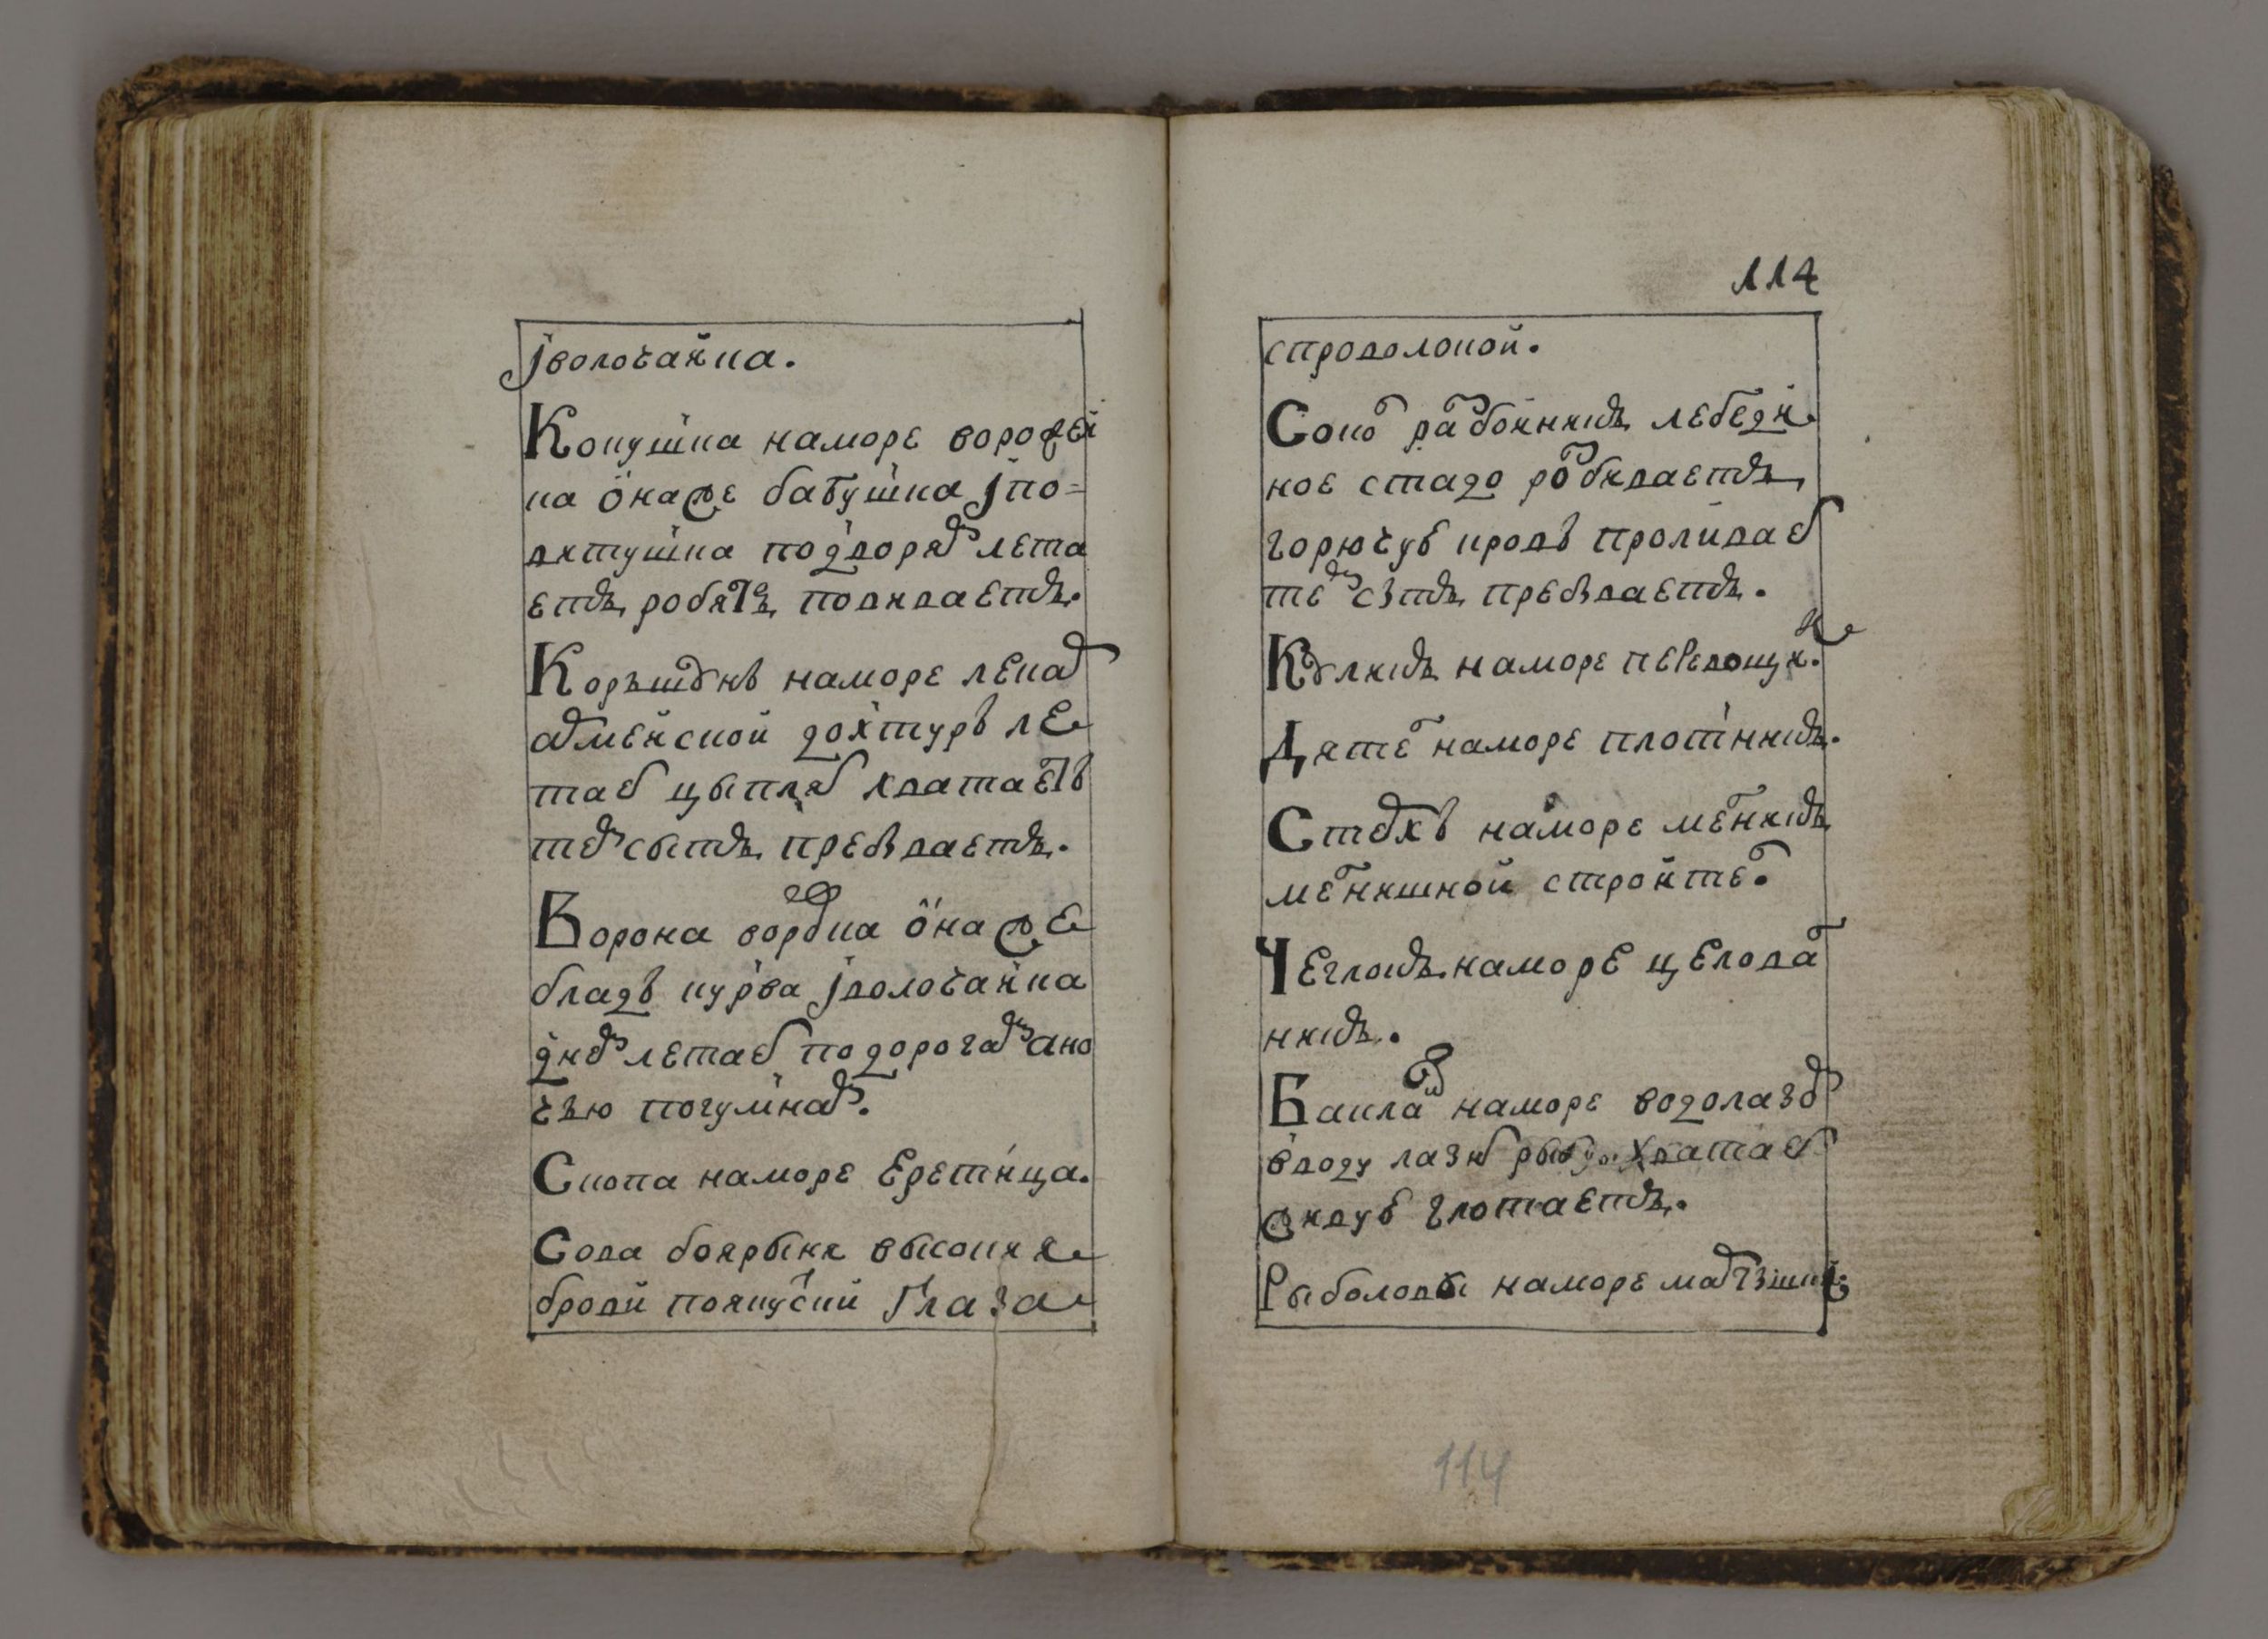 їволочайка.
Кокушка наморе ворожей
ка онаже бабушка їпо=
витушка подворам летa
етъ робятъ повиваетъ.
Коръшунъ наморе лекар
армейской дохтуръ ле
таетъ цыплят хватаетъ
тем сытъ пребываетъ.
Ворона воровка онаже
блядь курва їволочайка
днем летает подорогам ано
чью погумнам.
Скопа наморе Еретица.
Сова боярыня высокия
брови порускии глаза
114
споволокой.
Сокол разбойникъ лебеди
ное стадо розбиваетъ
горючую кровь проливает
тем сытъ пребываетъ.
Куликъ наморе перевощик.
Дятел наморе плотникъ.
Стерхъ наморе мелникъ
мелнишной строител.
Чегловъ наморе целовал
никъ.
Баклан наморе водолаз
вводу лазит рыбу хватает
живую глотаетъ.
Рыболовы наморе
114